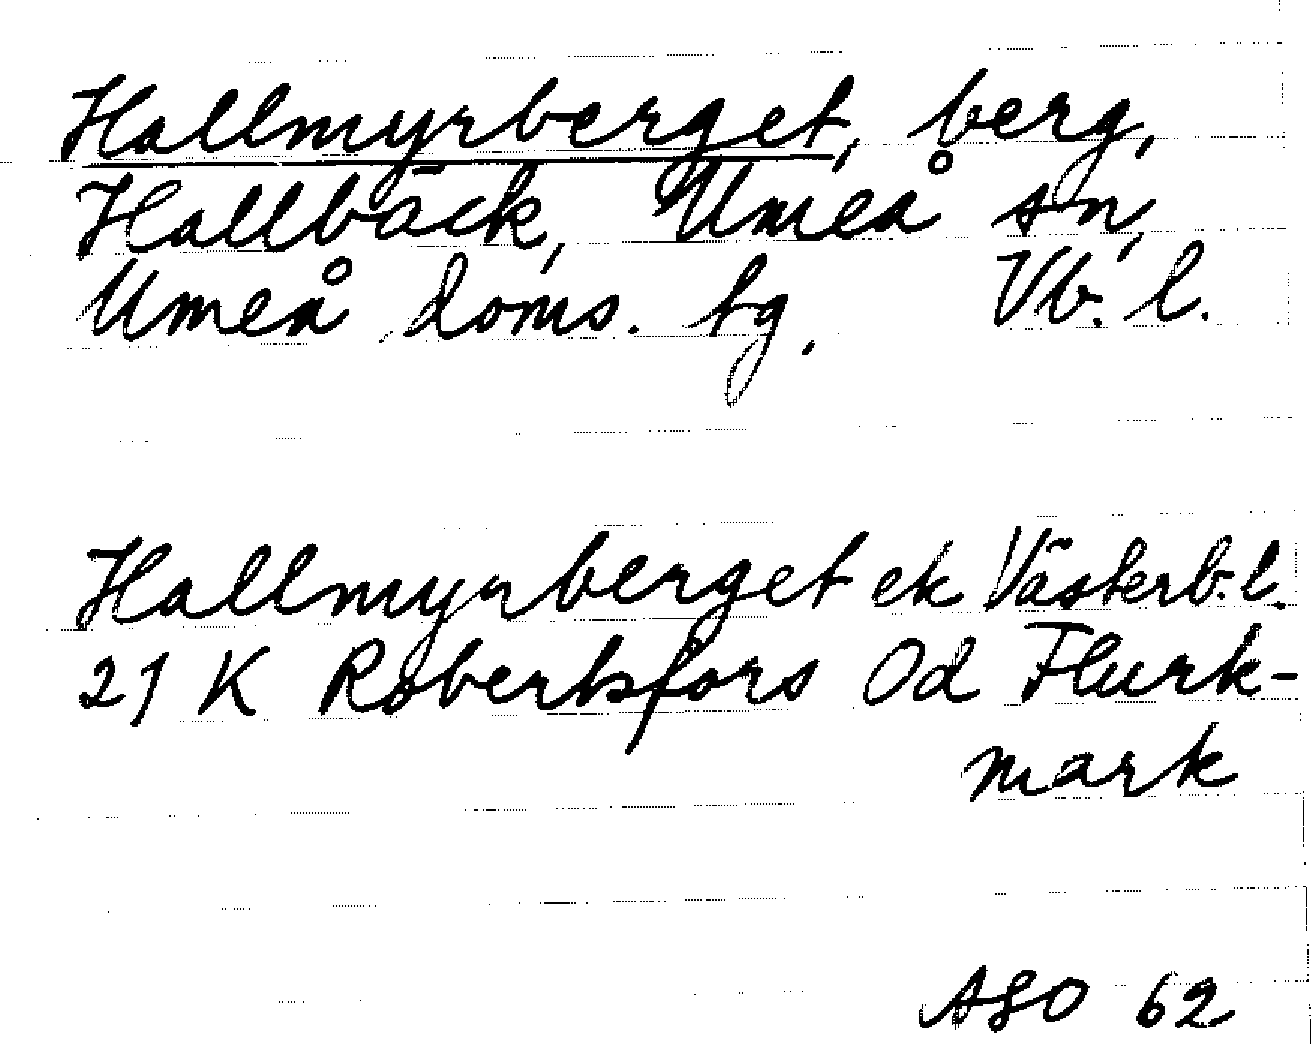 Hallmyrberget, berg,
Hallbäck, Umeå sn,
Umeå doms. tg. Vb. l.
Hallmyrberget ek Västerb. l.
21 K Robertsfors Od Flurk-
mark
ASO 62